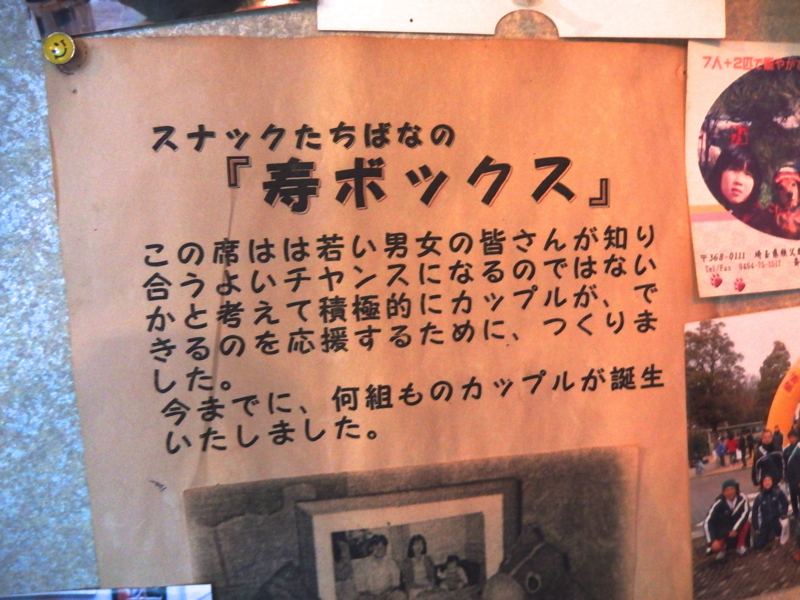 スナックたちばなの
『寿ボックス』
この席はは若い男女の皆さんが知り
合うよいチャンスになるのではない
かと考えて積極的にカップルが、で
きるのを応援するために、つくりま
した。
今までに、何組ものカップルが誕生
いたしました。
7人+2匹で
〒368-0111
Tel/Fax 0494-75-3517